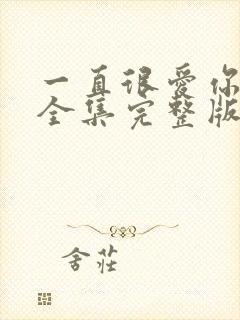 一直很爱你
全集完整版
舍莊